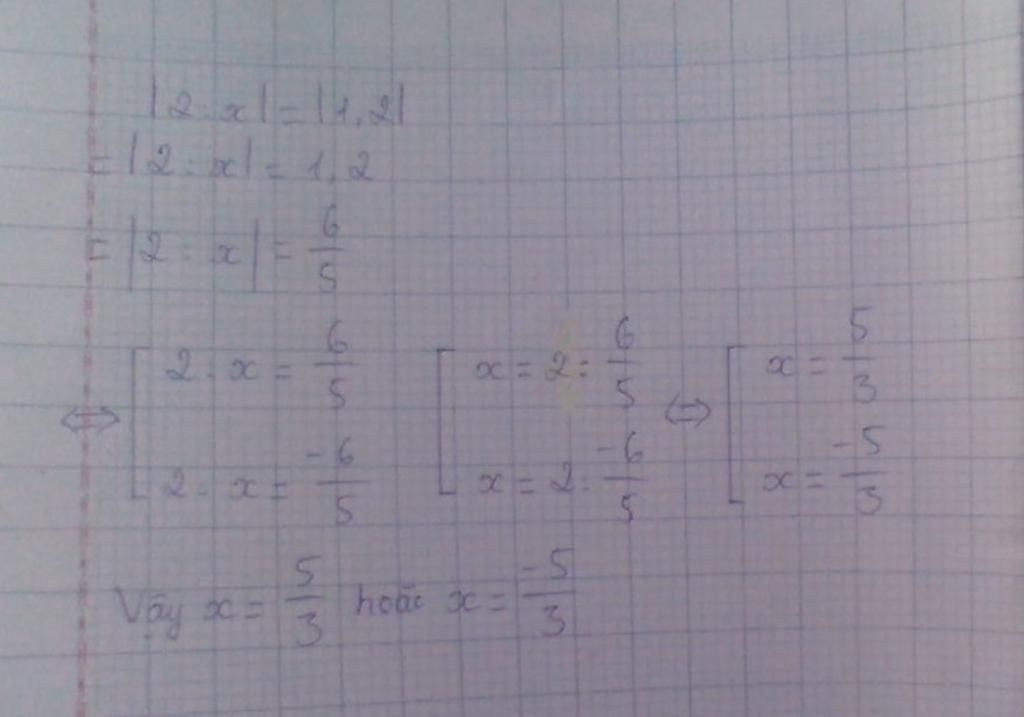 |2 : x| = |1,2|
= |2 : x| = 1,2
= |2 : x| = 6/5
⇔ [ 2 : x = 6/5 [ x = 2 : 6/5 ⇔ [ x = 5/3
2 : x = -6/5 x = 2 : -6/5 x = -5/3
Vậy x = 5/3 hoặc x = -5/3